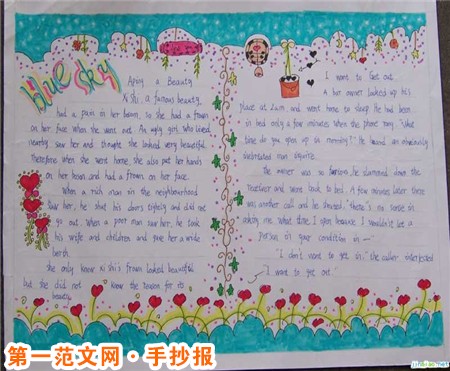 blue sky
Aping a Beauty
Xi shi, a famous beauty,
had a pain in her bosom, so she had a frown
on her face when she went out. An ugly girl who lived
nearby saw her and thought she looked very beautiful.
Therefore when she went home, she also put her hands
on her bosom and had a frown on her face.
When a rich man in the neighbourhood
saw her, he shut his doors tightly and did not
go out. When a poor man saw her, he took
his wife and children and gave her a wide
berth.
She only knew Xi shi's frown looked beautiful
but she did not know the reason for its
beauty.
I want to get out
A bar owner locked up his
place at 2 a.m. and went home to sleep. He had been
in bed only a few minutes when the phone rang. "What
time do you open up in the morning?" He heard an obviously
inebriated man inquire.
The owner was so furious, he slammed down the
receiver and went back to bed. A few minutes later there
was another call and he
asking me what time I open because I wouldn't let a
person in your condition in—
"I don't want to get in." the caller interjected
I want to get out.
第一范文网·手抄报